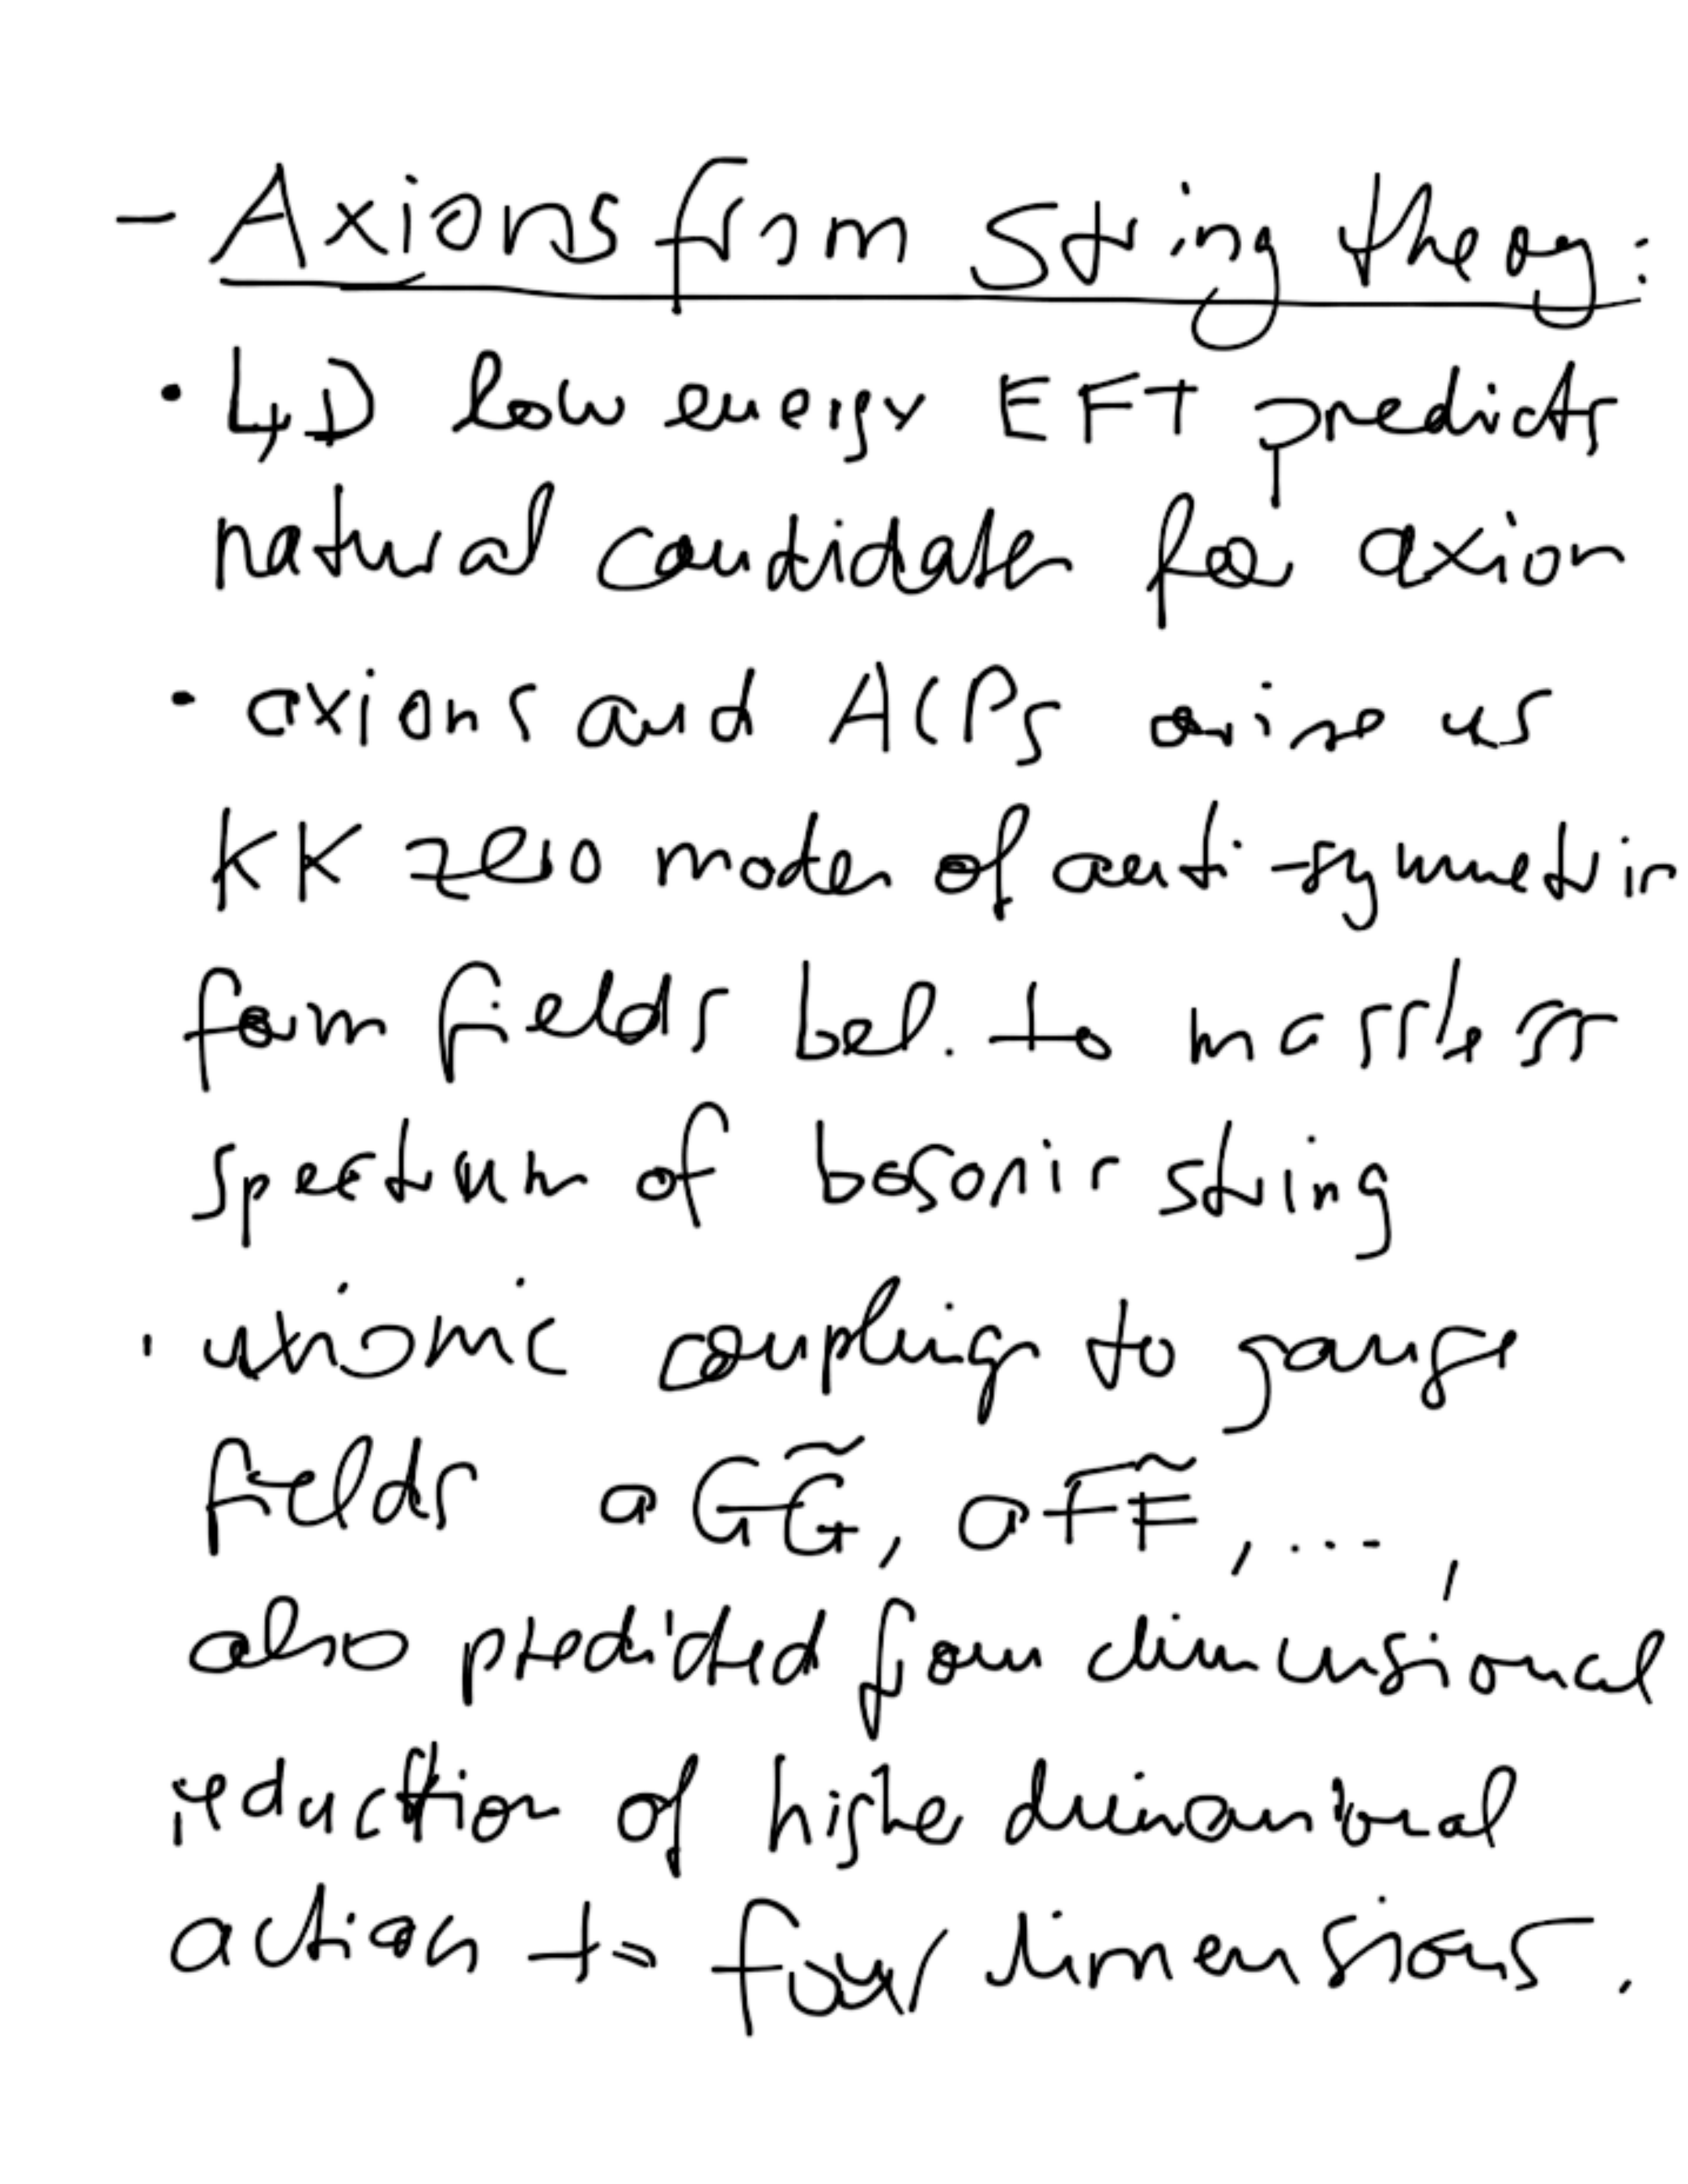 - Axions from string theory:
· 4D low energy EFT predicts
natural candidates for axion
· axions and ALPs arise as
KK zero modes of anti-symmetric
form fields bel. to massless
spectrum of bosonic string
· axionic couplings to gauge
fields aGG̃, aFF̃, ...,
also predicted from dimensional
reduction of higher dimensional
action to four dimensions.